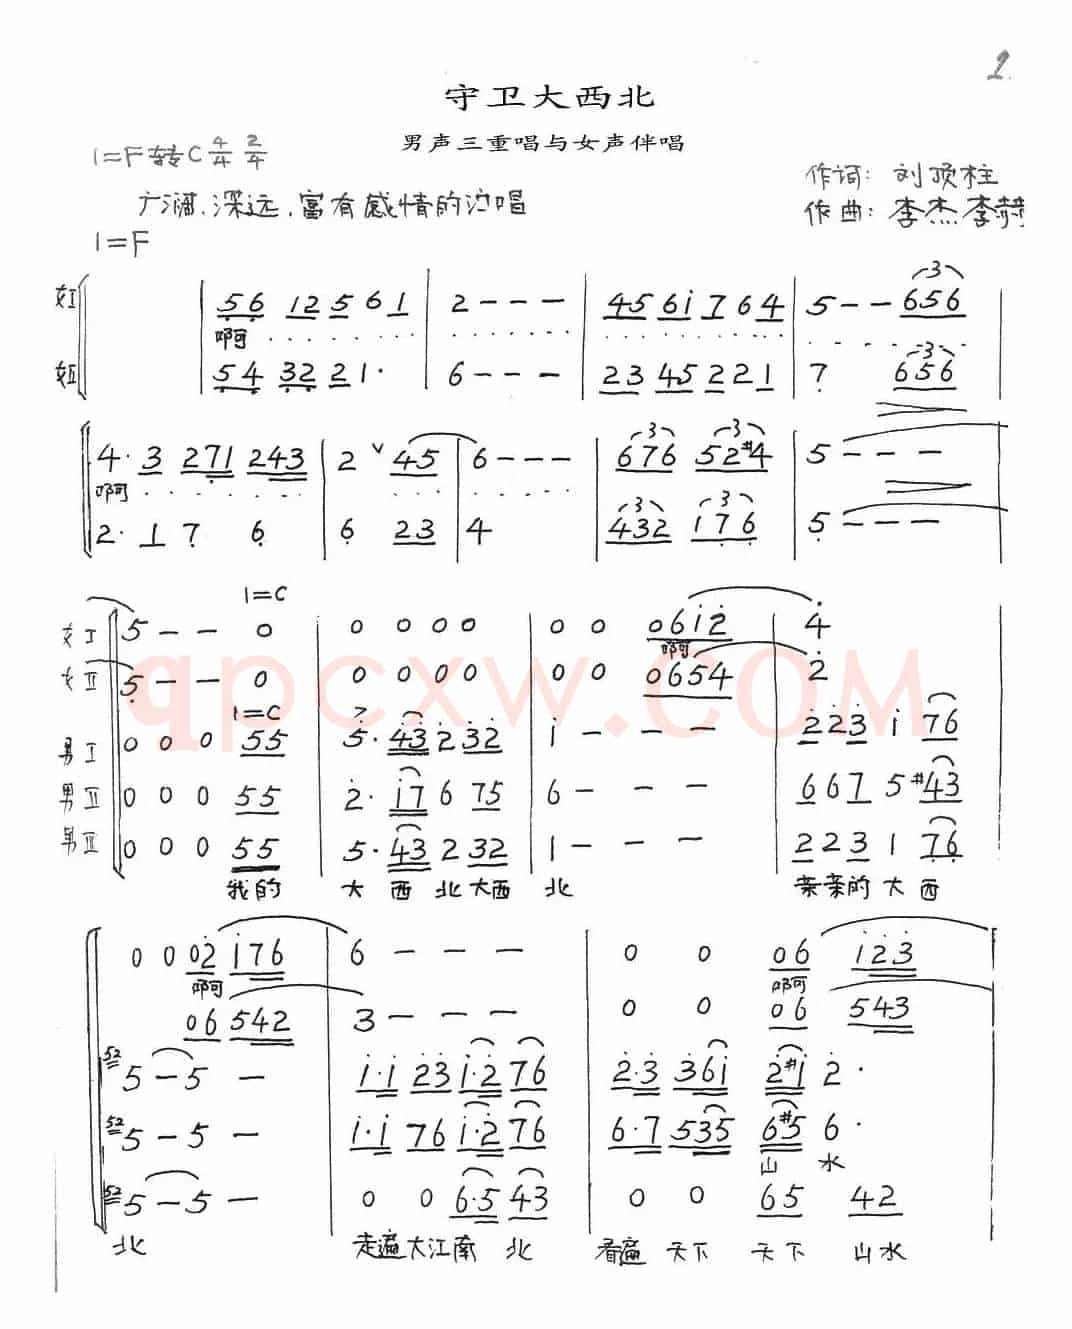 2.
守卫大西北
男声三重唱与女声伴唱
1=F转C 4/4 2/4
作词: 刘顶柱
广阔、深远、富有感情的演唱
作曲: 李杰李赫
1=F
女I 56 12 5 6 1 | 2 - - - | 45 61 7 6 4 | 5 - - 656
啊
女II 54 32 21· | 6 - - - | 23 45 2 2 1 | 7 656
4· 3 271 243 | 2 ∨ 45 | 6 - - - | 676 52#4 | 5 - - -
啊
2· 1 7 6 | 6 23 | 4 | 432 176 | 5 - - -
1=C
女I 5 - - 0 | 0 0 0 0 | 0 0 0612 | 4
啊
女II 5 - - 0 | 0 0 0 0 | 0 0 0654 | 2
1=C
男I 0 0 0 55 | 5· 43 2 32 | 1 - - - | 2 23 1 76
男II 0 0 0 55 | 2· 17 6 75 | 6 - - - | 6 67 5 #43
男III 0 0 0 55 | 5· 43 2 32 | 1 - - - | 2 23 1 76
我的 大 西 北 大西 北 亲亲的 大 西
0 0 02 176 | 6 - - - | 0 0 06 123
啊 啊
06 542 | 3 - - - | 0 0 06 543
52 5 - 5 - | 1·1 23 1·2 76 | 2·3 361 2#1 2·
52 5 - 5 - | 1·1 76 1·2 76 | 6·7 535 6#5 6·
山 水
52 5 - 5 - | 0 0 6·5 43 | 0 0 65 42
北 走遍大江南 北 看遍 天下 天下 山水
qpcxw.COM